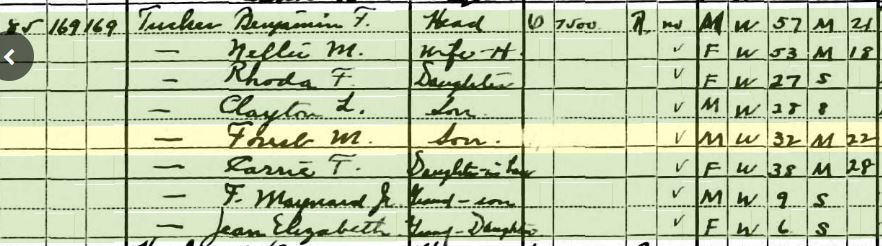 85 169 169 Tucker Benjamin F. Head O 7500 R no M W 57 M 21
— Nellie M. Wife-H. ✓ F W 53 M 18
— Rhoda F. Daughter ✓ F W 27 S
— Clayton L. Son ✓ M W 28 S
— Forest M. Son. ✓ M W 32 M 22
— Carrie T. Daughter-in-Law ✓ F W 38 M 28
— F. Maynard Jr. Grand-son ✓ M W 9 S
— Jean Elizabeth Grand-Daughter ✓ F W 6 S